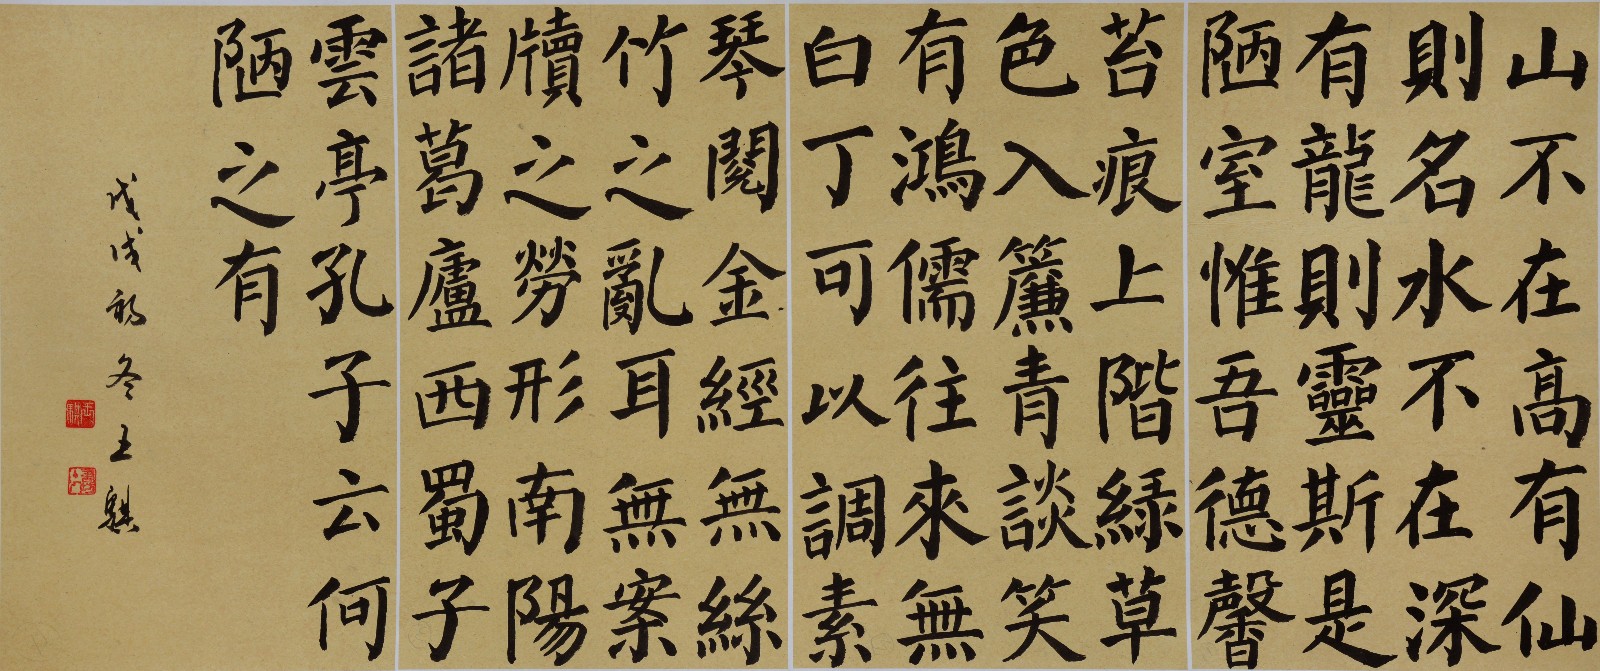 山不在高有仙
則名水不在深
有龍則靈斯是
陋室惟吾德馨
苔痕上階綠草
色入簾青談笑
有鴻儒往來無
白丁可以調素
琴閱金經無絲
竹之亂耳無案
牘之勞形南陽
諸葛廬西蜀子
雲亭孔子云何
陋之有
戊戌初冬王騏